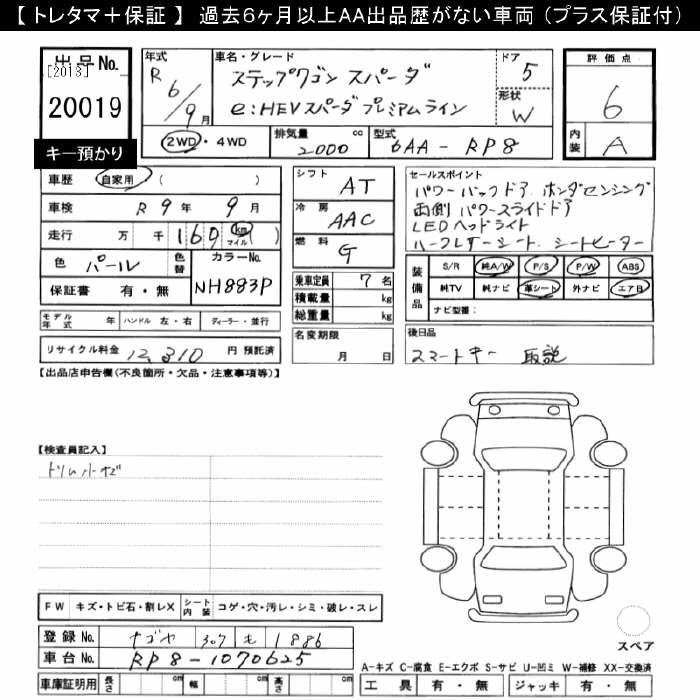 【 トレタマ＋保証 】 過去６ヶ月以上ＡＡ出品歴がない車両（プラス保証付）
出品No.
[2013]
20019
キー預かり
年式 R 6/9月
車名・グレード ステップワゴン スパーダ
e:HEVスパーダ プレミアムライン
ドア 5
形状 W
2WD・4WD
排気量 2000 cc
型式 6AA-RP8
評価点 6
内装 A
車歴 自家用 ( )
車検 R 9年 9月
走行 万 千 160 km マイル ( )
色 パール 色替 カラーNo. NH883P
保証書 有・無
シフト AT
冷房 AAC
燃料 G
乗車定員 7名
積載量 kg
総重量 kg
セールスポイント
パワーバックドア ホンダセンシング
両側パワースライドドア
LEDヘッドライト
ハーフレザーシート、シートヒーター
装備品 S/R 純A/W P/S P/W ABS
純TV 純ナビ 革シート 外ナビ エアB
ナビ型番：
モデル年式 年 ハンドル 左・右 ディーラー・並行
リサイクル料金 12,310 円 預託済
名変期限 月 日
後日品
スマートキー 取説
【出品店申告欄(不良箇所・欠品・注意事項等)】
【検査員記入】
FW キズ・トビ石・割レX シート内装 コゲ・穴・汚レ・シミ・破レ・スレ
登録No. ナゴヤ 307 も 1886
車台No. RP8-1070625
車庫証明用 長さ cm 幅 cm 高さ cm
スペア
A-キズ C-腐食 E-エクボ S-サビ U-凹ミ W-補修 XX-交換済
工具 有・無 ジャッキ 有・無